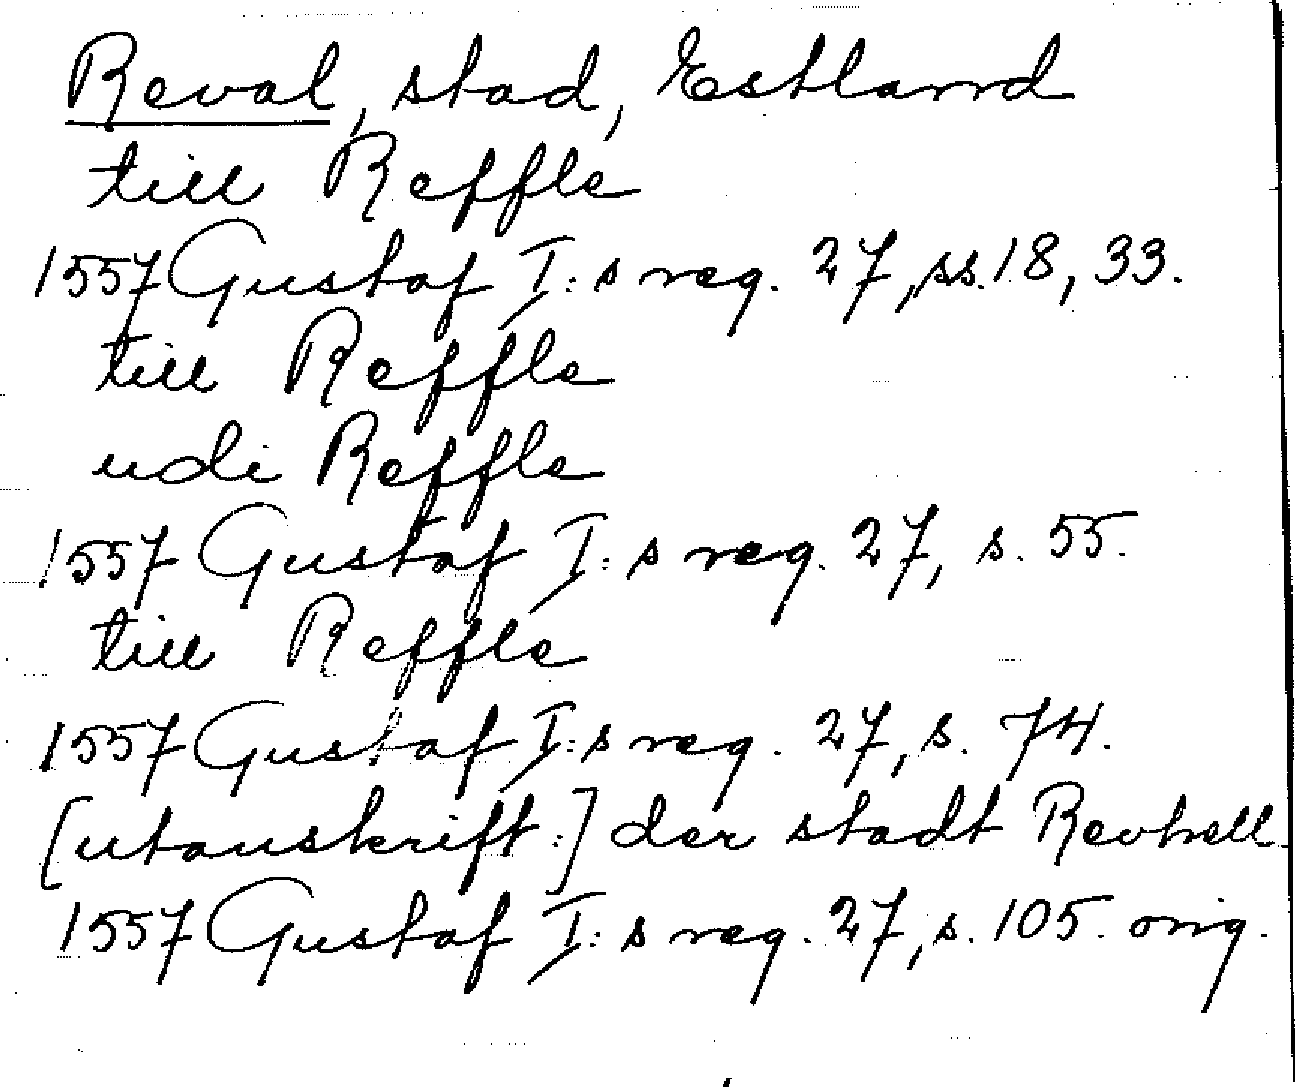 Reval, stad, Estland
till Reffle
1557 Gustaf I:s reg. 27, ss. 18, 33.
till Reffle
udi Reffle
1557 Gustaf I:s reg. 27, s. 55.
till Reffle
1557 Gustaf I:s reg. 27, s. 74.
[utanskrift:] der stadt Revhell
1557 Gustaf I:s reg. 27, s. 105. orig.